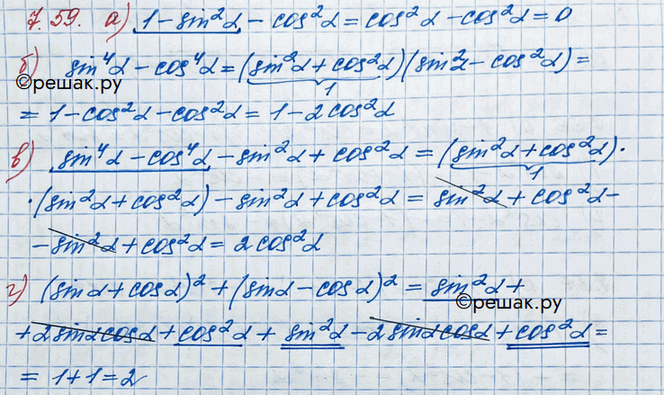 7.59. а) 1 - sin²α - cos²α = cos²α - cos²α = 0
б) sin⁴α - cos⁴α = (sin²α + cos²α)(sin²α - cos²α) =
1
©решак.ру
= 1 - cos²α - cos²α = 1 - 2cos²α
в) sin⁴α - cos⁴α - sin²α + cos²α = (sin²α + cos²α) ·
1
· (sin²α + cos²α) - sin²α + cos²α = sin²α + cos²α -
- sin²α + cos²α = 2cos²α
г) (sinα + cosα)² + (sinα - cosα)² = sin²α +
©решак.ру
+ 2sinαcosα + cos²α + sin²α - 2sinαcosα + cos²α =
= 1 + 1 = 2